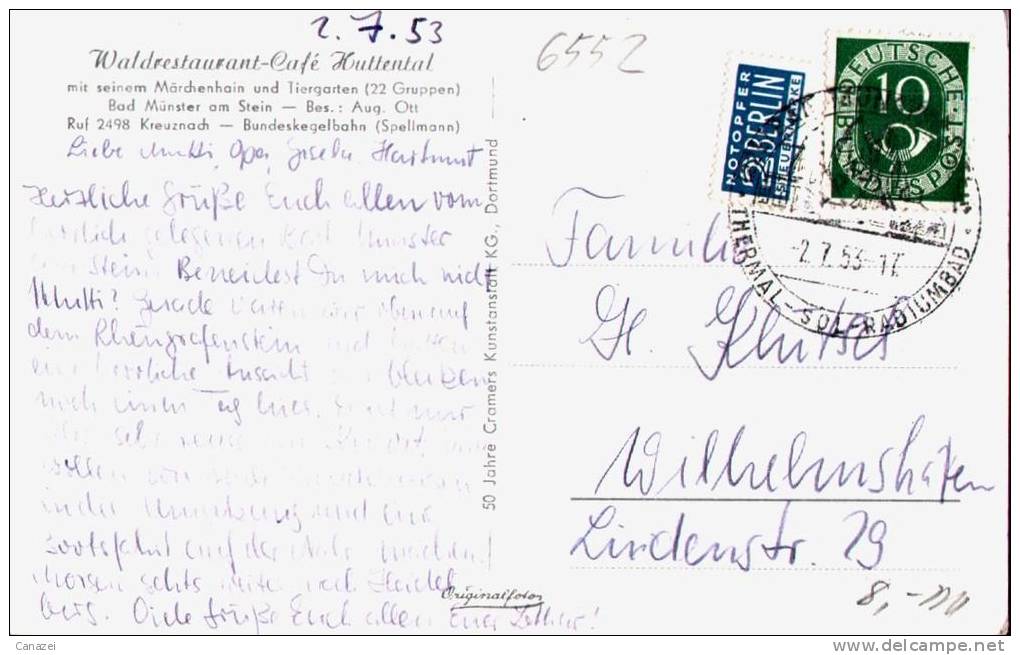 2.7.53
6552
Waldrestaurant-Café Huttental
mit seinem Märchenhain und Tiergarten (22 Gruppen)
Bad Münster am Stein — Bes.: Aug. Ott
Ruf 2498 Kreuznach — Bundeskegelbahn (Spellmann)
Liebe Mutti, Opa, Gisela, Hartmut
Herzliche Grüße Euch allen vom
herrlich gelegenen Bad Münster
am Stein. Beneidest Du mich nicht
Mutti? Gerade waren wir oben auf
dem Rheingrafenstein und hatten
eine herrliche Aussicht. bleiben
noch einen Tag hier.
sehr
wollen
in der Umgebung und eine
Bootsfahrt auf der Nahe machen!
Morgen gehts weiter nach Heidel
berg. Viele Grüße Euch allen Euer Lothar!
50 Jahre Cramers Kunstanstalt KG., Dortmund
Originalfotos
NOTOPFER
2 BERLIN
STEUERMARKE
DEUTSCHE
10
BUNDESPOST
-2.7.53-17
THERMAL-SOL-RADIUMBAD
Familie
H.
Wilhelmshaven
Lindenstr. 29
8,-
Canazei
www.delcampe.net